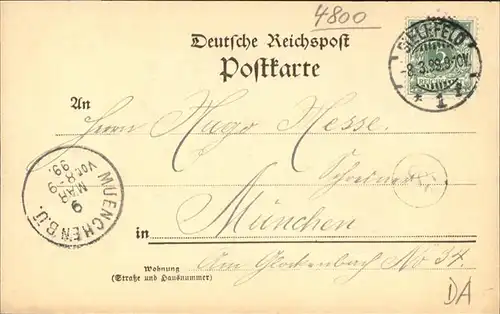 4800
Deutsche Reichspost
Postkarte
BIELEFELD
8.3.99.9-10V.
* 1 f
An
Herrn Hugo Hesse.
Schreiner
MUENCHEN B.Ü.
9
MAR
Vor 8-9
99.
in München
Wohnung
(Straße und Hausnummer)
Am Glockenbach No 34.
DA